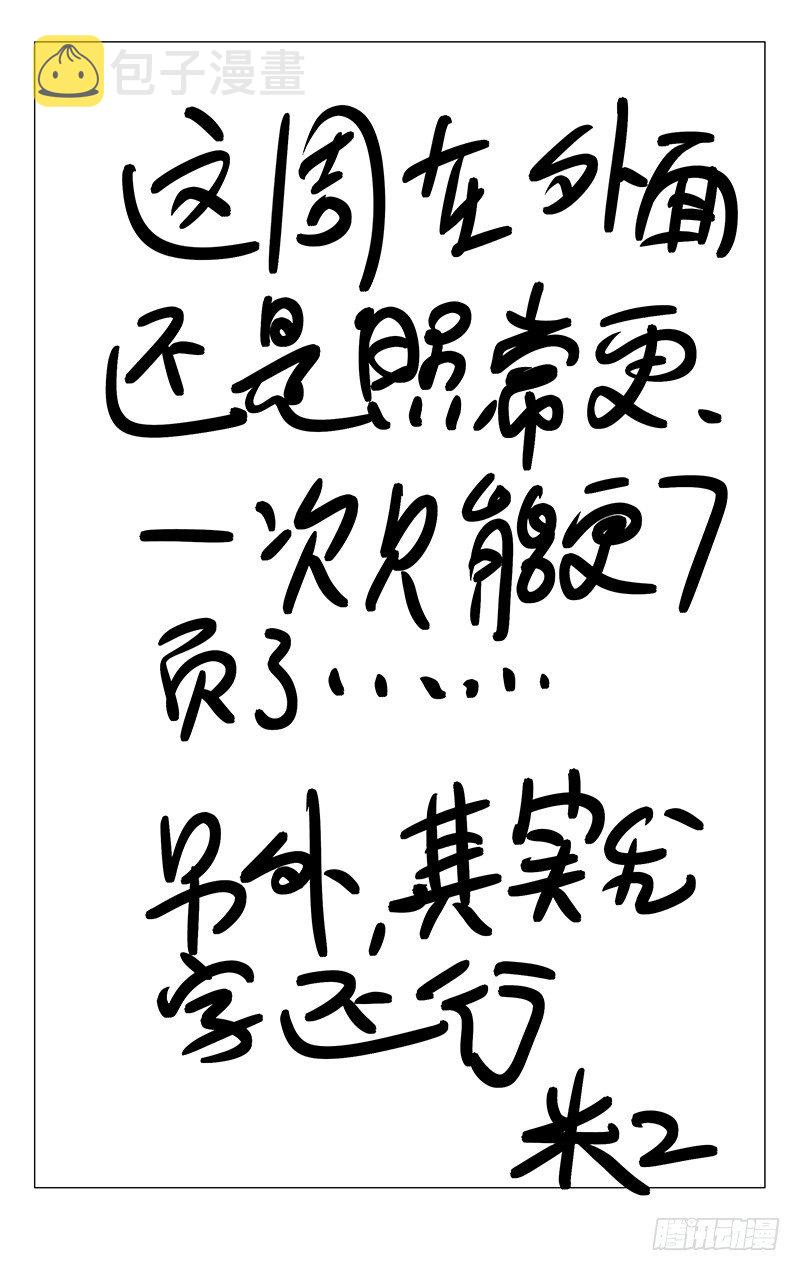 包子漫畫
这周在外面
还是照常更、
一次只能更7
页了……
另外,其实我
字还行
米二
腾讯动漫